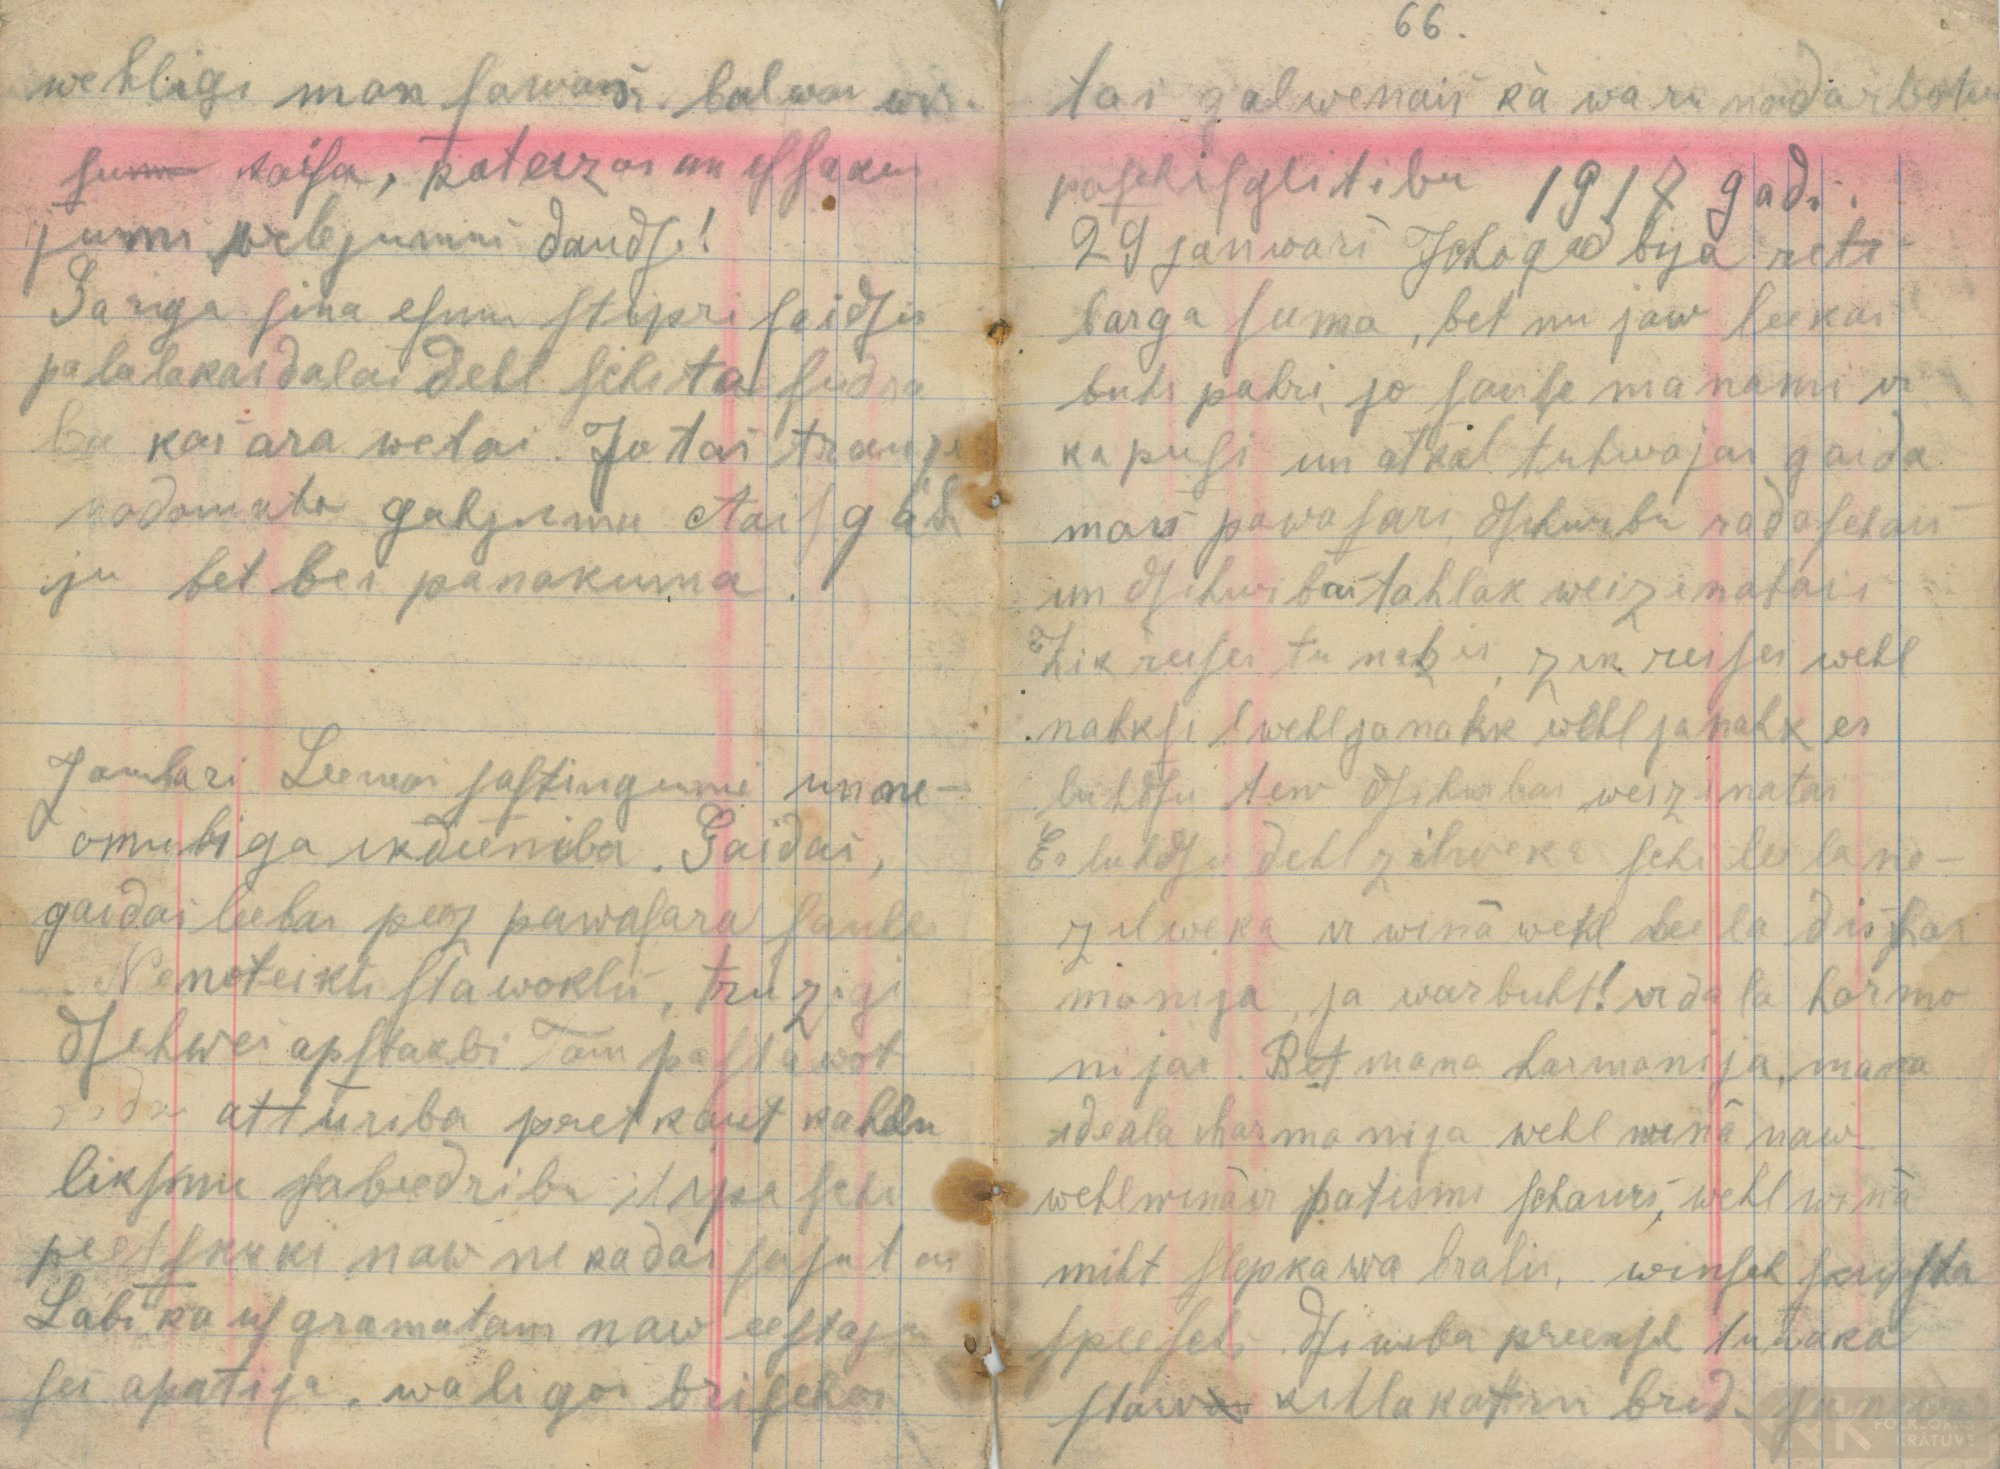 wehligi man sawāsi balwai wir-
kaisa, pateizas un essakus
jumi welejumus daudsi!
Gariga sina esmu stipri saidsis
palalakaidalai dehl schita sudra
ba kas ara wetai. Jo tas trauze
nodomato gahjumu Aisgah
ju bet bes panakuma.
Janwari Leewai sastingumi un ne-
omubiga ikdeeniba. Gaidas,
gaidas leebas peez pawasara saules
Nenoteikts stawoklis, truzigi
dsihwes apstakli Tam pastawot
atturiba preet kaut kahdu
liksmu sabeedribu it ipaschi
preet skuki naw nekadas jusutas
Labi ka us gramatam naw eestaju
ses apatija. waligos brischos
66.
tas galwenais kā waru nodarbotes
paschisglitibu 1917 gadi.
29 janwari Schogad bija reti
barga seema, bet nu jaw leekas
buhs pahri, jo saule manami ir
kapusi un atkal tuhwojas gaida
mais pawasaris, dsihwibu radoschais
un dsihwibai tahlak weizinatais
Zik reises tu nahzis, zik reises wehl
nahksi wehl ja nahk wehl ja nahk es
luhdsu tew dsihwibas weizinatai
Es luhdsu dehl zilweka schi leela ne-
zilweka ir winā wehl leela dishar
monija, ja warbuht! ir dala harmo
nijas. Bet mana harmonija, mana
ideala harmonija wehl winā naw
wehl winā ir patismi schauri, wehl winā
miht slepkawa bralis, winsch skaysta
speesch dsiwiba preeksch tuwaka
stawu killakattru bridi
FOLKLORAS
KRĀTUVE